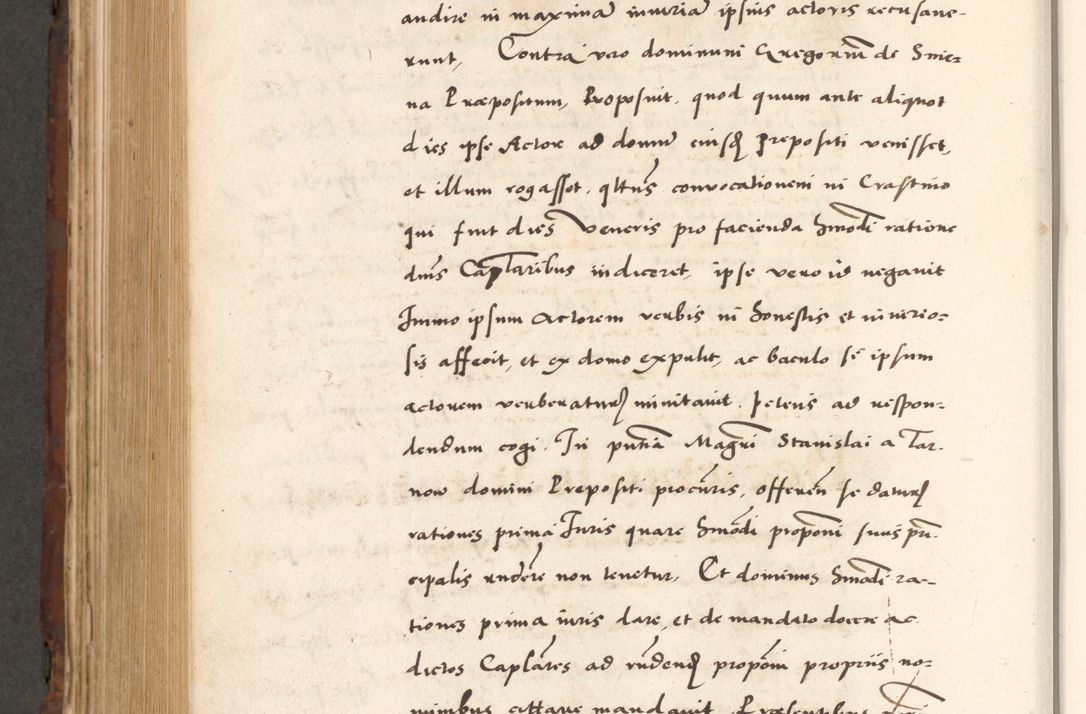 audire in maximā iniuriā ipsius actoris recusaue-
runt, Contra vero dominum Gregoriū de Snie-
na Præpositum, Proposuit, quod quum ante aliquot
dies ipse Actor ad domū eiusdē Prepositi venisset,
et illum rogasset, convocationem in Crastino
qui fuit dies Veneris pro facienda ratione
Caplaribus indiceret, ipse vero id negavit
Immo ipsum actorem verbis in honestis et iniurio-
sis affecit, et ex domo expulit, ac baculo se ipsum
actorem verberaturū minitauit. Petens ad respon-
dendum cogi. In pntia Magri Stanislai a Tar-
now domini Prepositi procuris, offeren se daturū
rationes prima Juris quare propōni suus prin
cipalis rndere non tenetur, Et dominus ra-
tiones prima iuris dare, et de mandato docere ac
dictos Caplares ad rndend propōni propriis no-
minibus cittare mandauit. Præsentibus